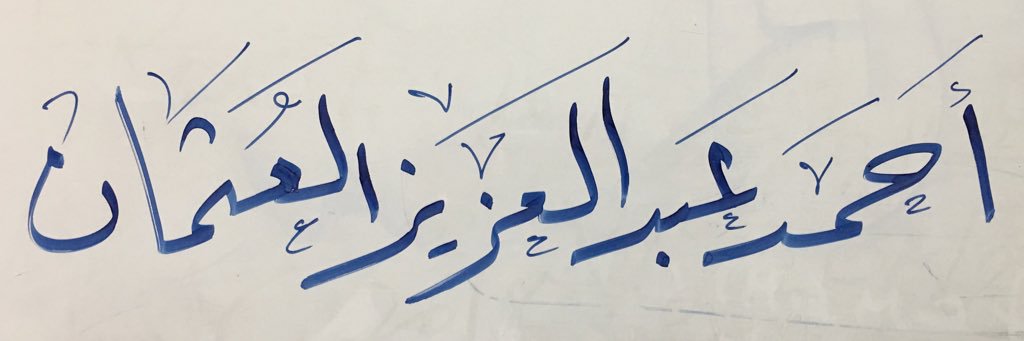 أحمد عبد العزيز العُثمان